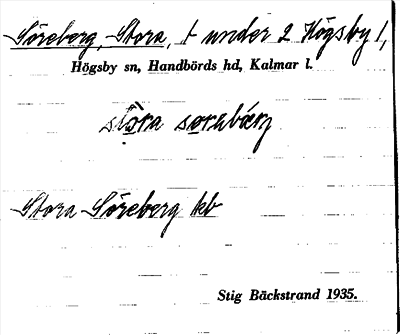 Söreberg, Stora, t under 2 Högsby 1,
Högsby sn, Handbörds hd, Kalmar l.
stora
Stora Söreberg kb
Stig Bäckstrand 1935.